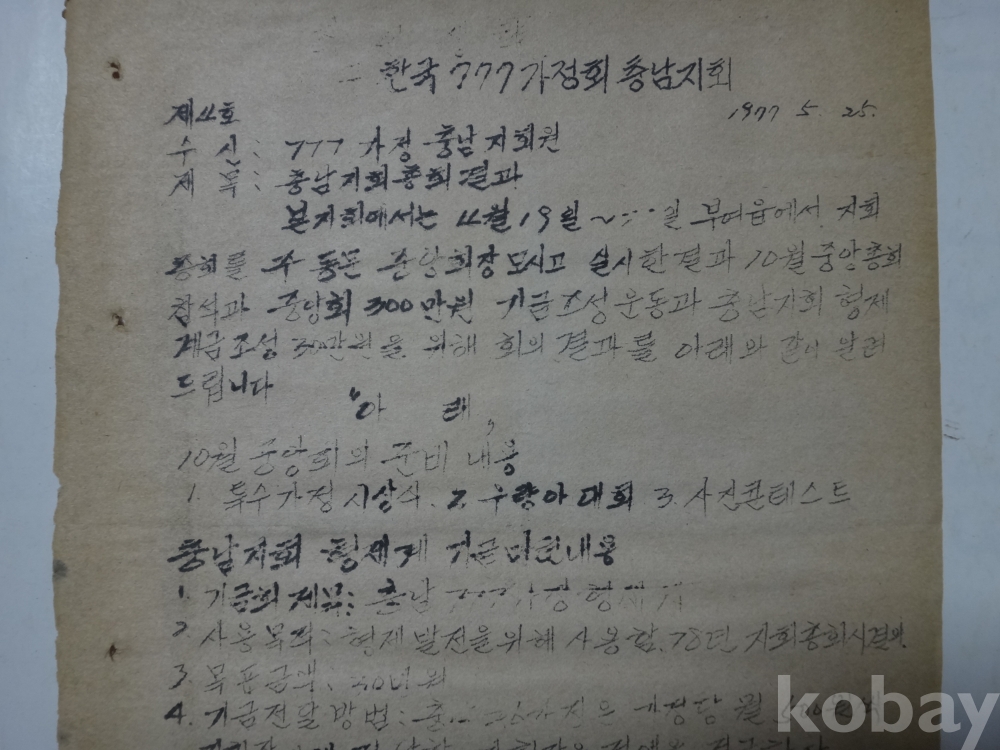 한국 777가정회 충남지회
제4호 1977 5. 25.
수 신 : 777 가정 충남지회원
제 목 : 충남지회총회결과
본지회에서는 4月 19일 ~ 일 부여읍에서 지회
총회를 중앙회장 모시고 실시한결과 10월 중앙총회
참석과 중앙회 300만원 기금조성 운동과 충남지회 형제
계금조성 30만원을 위해 회의 결과를 아래와 같이 알려
드립니다
"아 래"
10월 중앙회의 준비 내용
1. 특수가정 시상식. 2. 우량아대회 3. 사진콘테스트
충남지회 형제계 기금 내용
1. 기금의 제목: 충남 777가정 형제계
2. 사용목적: 형제 발전을 위해 사용함. 78년 지회총회시결의.
3. 목표금액: 30만원
4. 기금전달방법: 가정은 가정당 월
kobay